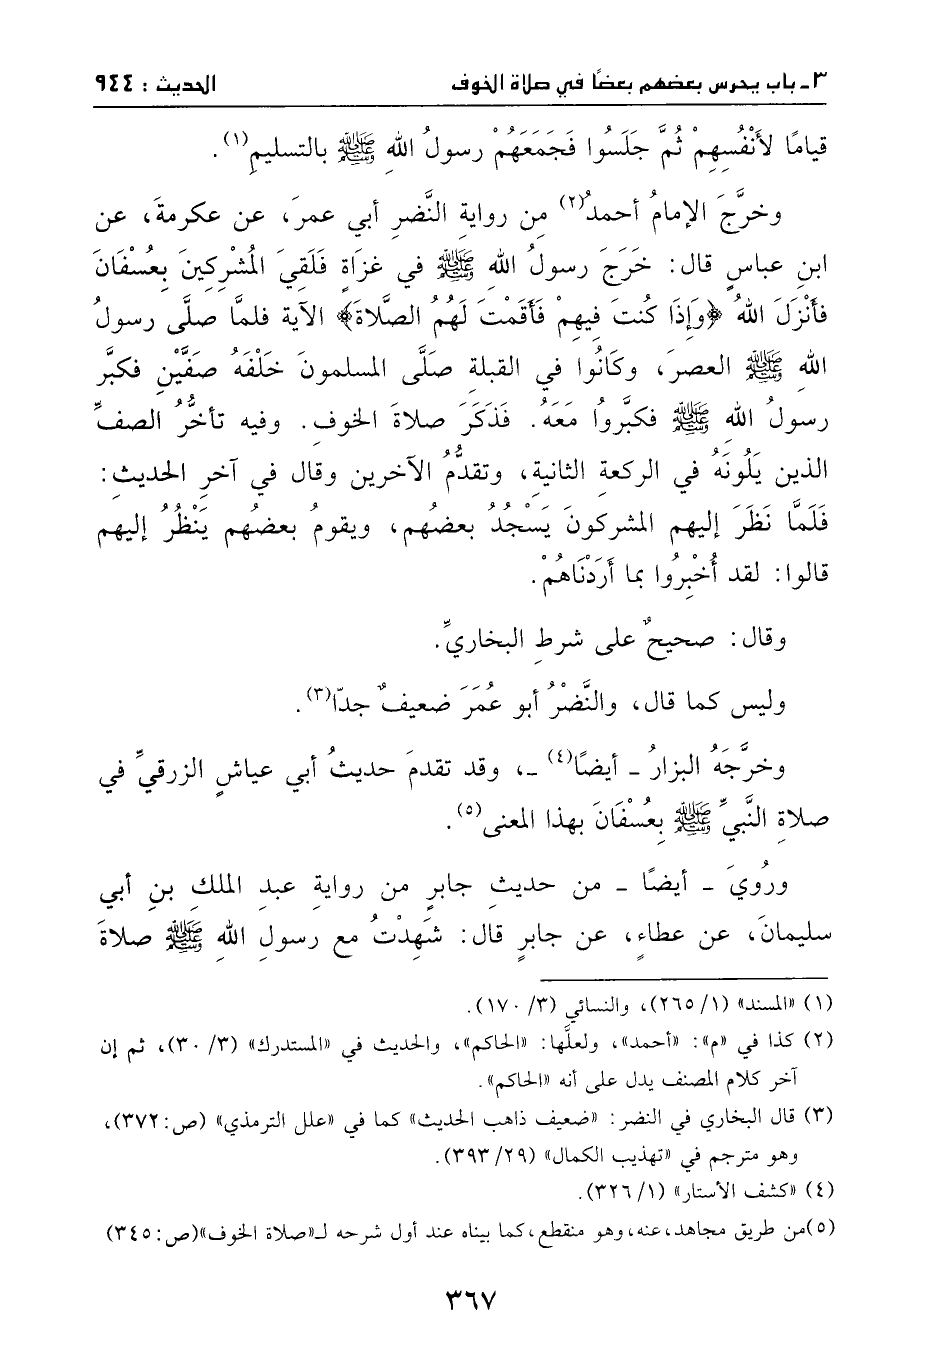 ٣ - باب يحرس بعضهم بعضًا في صلاة الخوف
الحديث : ٩٤٤
قيامًا لأَنْفُسِهِمْ ثُمَّ جَلَسُوا فَجَمَعَهُمْ رسولُ اللهِ ﷺ بالتسليمِ(١).
وخرَّجَ الإمامُ أحمدُ(٢) مِن روايةِ النَّضرِ أبي عمرَ، عن عكرمةَ، عن
ابنِ عباسٍ قال: خَرَجَ رسولُ اللهِ ﷺ في غزَاةٍ فَلَقِيَ المُشْرِكِينَ بِعُسْفَانَ
فأَنْزَلَ اللهُ ﴿وَإِذَا كُنتَ فِيهِمْ فَأَقَمْتَ لَهُمُ الصَّلاةَ﴾ الآية فلمَّا صلَّى رسولُ
اللهِ ﷺ العصرَ، وكَانُوا في القبلةِ صَلَّى المسلمونَ خَلْفَهُ صَفَّيْنِ فكبَّرَ
رسولُ اللهِ ﷺ فكبَّرُوا مَعَهُ. فَذَكَرَ صلاةَ الخوفِ. وفيه تأخُّرُ الصفِّ
الذين يَلُونَهُ في الركعةِ الثانيةِ، وتقدُّمُ الآخرين وقال في آخرِ الحديثِ:
فَلَمَّا نَظَرَ إليهم المشركونَ يَسْجُدُ بعضُهم، ويقومُ بعضُهم يَنْظُرُ إليهم
قالوا: لقد أُخْبِرُوا بما أَرَدْنَاهُمْ.
وقال: صحيحٌ على شرطِ البخاريِّ.
وليس كما قال، والنَّضْرُ أبو عُمَرَ ضعيفٌ جدّا(٣).
وخرَّجَهُ البزارُ ـ أيضًا(٤) ـ، وقد تقدمَ حديثُ أبي عياشٍ الزرقيِّ في
صلاةِ النَّبيِّ ﷺ بِعُسْفَانَ بهذا المعنى(٥).
ورُوِيَ ـ أيضًا ـ من حديثِ جابرٍ من روايةِ عبدِ الملكِ بنِ أبي
سليمانَ، عن عطاءٍ، عن جابرٍ قال: شَهِدْتُ مع رسولِ اللهِ ﷺ صلاةَ
(١) «المسند» (١/ ٢٦٥)، والنسائي (٣/ ١٧٠).
(٢) كذا في «م»: «أحمد»، ولعلَّها: «الحاكم»، والحديث في «المستدرك» (٣/ ٣٠)، ثم إن
آخر كلام المصنف يدل على أنه «الحاكم».
(٣) قال البخاري في النضر: «ضعيف ذاهب الحديث» كما في «علل الترمذي» (ص:٣٧٢)،
وهو مترجم في «تهذيب الكمال» (٢٩/ ٣٩٣).
(٤) «كشف الأستار» (١/ ٣٢٦).
(٥)من طريق مجاهد،عنه،وهو منقطع،كما بيناه عند أول شرحه لـ«صلاة الخوف»(ص:٣٤٥)
٣٦٧